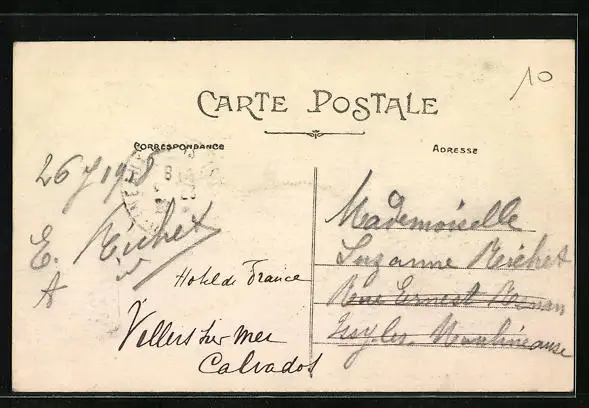 10
CARTE POSTALE
CORRESPONDANCE
ADRESSE
26 7 1915
E. Richet
Hotel de France
Villers sur mer
Calvados
Mademoiselle
Suzanne Richet
Rue Ernest Renan
Issy-les-Moulineaux